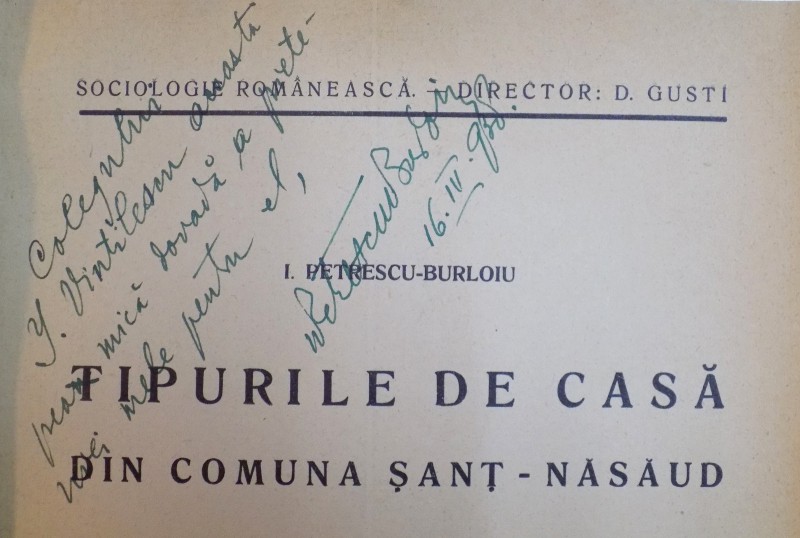 SOCIOLOGIE ROMÂNEASCĂ. — DIRECTOR: D. GUSTI
I. PETRESCU-BURLOIU
TIPURILE DE CASĂ
DIN COMUNA ȘANȚ - NĂSĂUD
Colegului
I. Vintilescu această
prea mică dovadă a priete-
niei mele pentru el,
Petrescu Burloiu
16.IV.938.